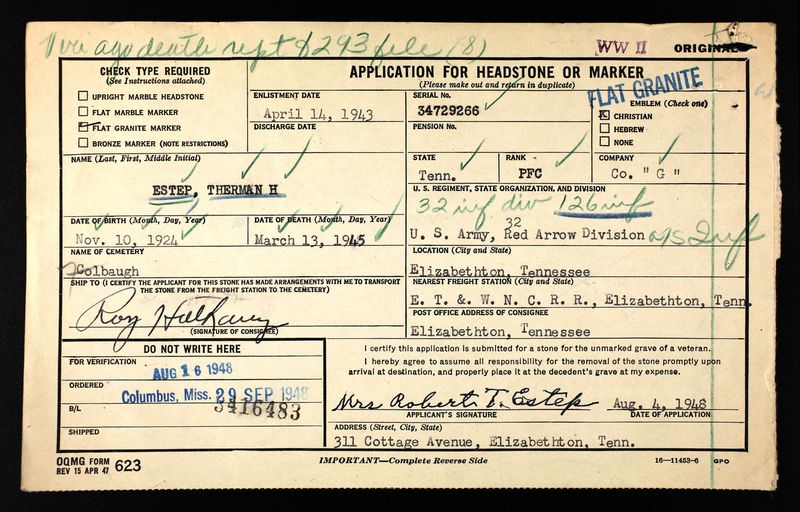 Vou ago death rept & 293 file (8)
WW II
ORIGINAL
CHECK TYPE REQUIRED
(See Instructions attached)
UPRIGHT MARBLE HEADSTONE
FLAT MARBLE MARKER
FLAT GRANITE MARKER
BRONZE MARKER (NOTE RESTRICTIONS)
APPLICATION FOR HEADSTONE OR MARKER
(Please make out and return in duplicate)
FLAT GRANITE
ENLISTMENT DATE
April 14, 1943
DISCHARGE DATE
SERIAL No.
34729266
PENSION No.
EMBLEM (Check one)
X CHRISTIAN
HEBREW
NONE
NAME (Last, First, Middle Initial)
ESTEP, THERMAN H
STATE
Tenn.
RANK
PFC
COMPANY
Co. "G"
U. S. REGIMENT, STATE ORGANIZATION, AND DIVISION
32 inf div 126 inf
32
U. S. Army, Red Arrow Division
US Inf
DATE OF BIRTH (Month, Day, Year)
Nov. 10, 1924
DATE OF DEATH (Month, Day, Year)
March 13, 1945
NAME OF CEMETERY
Colbaugh
LOCATION (City and State)
Elizabethton, Tennessee
SHIP TO (I CERTIFY THE APPLICANT FOR THIS STONE HAS MADE ARRANGEMENTS WITH ME TO TRANSPORT
THE STONE FROM THE FREIGHT STATION TO THE CEMETERY)
Roy Hathaway
(SIGNATURE OF CONSIGNEE)
NEAREST FREIGHT STATION (City and State)
E. T. &. W. N. C. R. R., Elizabethton, Tenn.
POST OFFICE ADDRESS OF CONSIGNEE
Elizabethton, Tennessee
DO NOT WRITE HERE
FOR VERIFICATION
AUG 16 1948
ORDERED
Columbus, Miss. 29 SEP 1948
B/L
3416483
SHIPPED
I certify this application is submitted for a stone for the unmarked grave of a veteran.
I hereby agree to assume all responsibility for the removal of the stone promptly upon
arrival at destination, and properly place it at the decedent's grave at my expense.
Mrs Robert T. Estep
Aug. 4, 1948
APPLICANT'S SIGNATURE
DATE OF APPLICATION
ADDRESS (Street, City, State)
311 Cottage Avenue, Elizabethton, Tenn.
OQMG FORM
REV 15 APR 47
623
IMPORTANT—Complete Reverse Side
16—11453-6 GPO